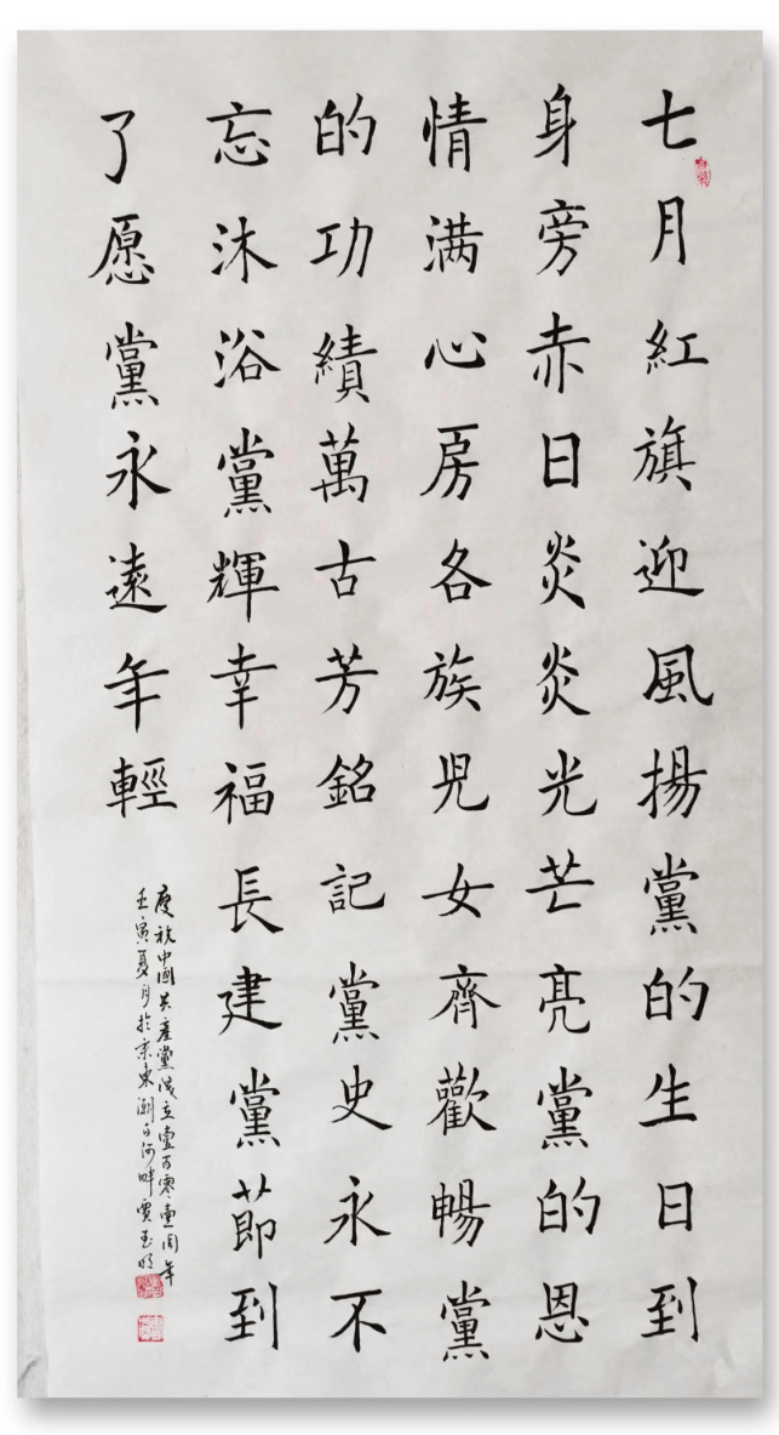 七月紅旗迎風揚黨的生日到
身旁赤日炎炎光芒亮黨的恩
情满心房各族兒女齊歡暢黨
的功績萬古芳銘記黨史永不
忘沐浴黨輝幸福長建黨節到
了愿黨永遠年輕
慶祝中國共產黨成立壹百零壹周年
壬寅夏月於京東潮白河畔賈玉明